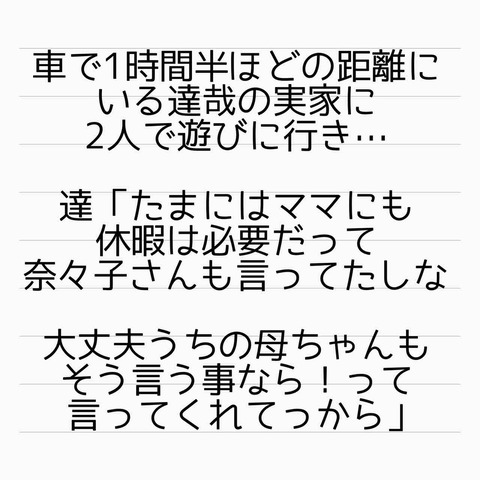 車で1時間半ほどの距離に
いる達哉の実家に
2人で遊びに行き…
達「たまにはママにも
休暇は必要だって
奈々子さんも言ってたしな
大丈夫うちの母ちゃんも
そう言う事なら！って
言ってくれてっから」